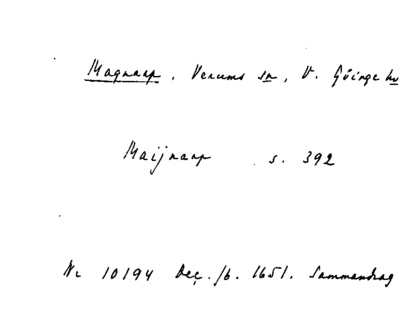 Magnarp. Verums sn, V. Göinge hd
Maijnarp s. 392
Nr 10194 Dec. /6. 1651. Sammandrag